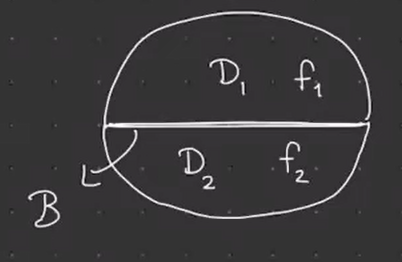 D₁ f₁
D₂ f₂
B